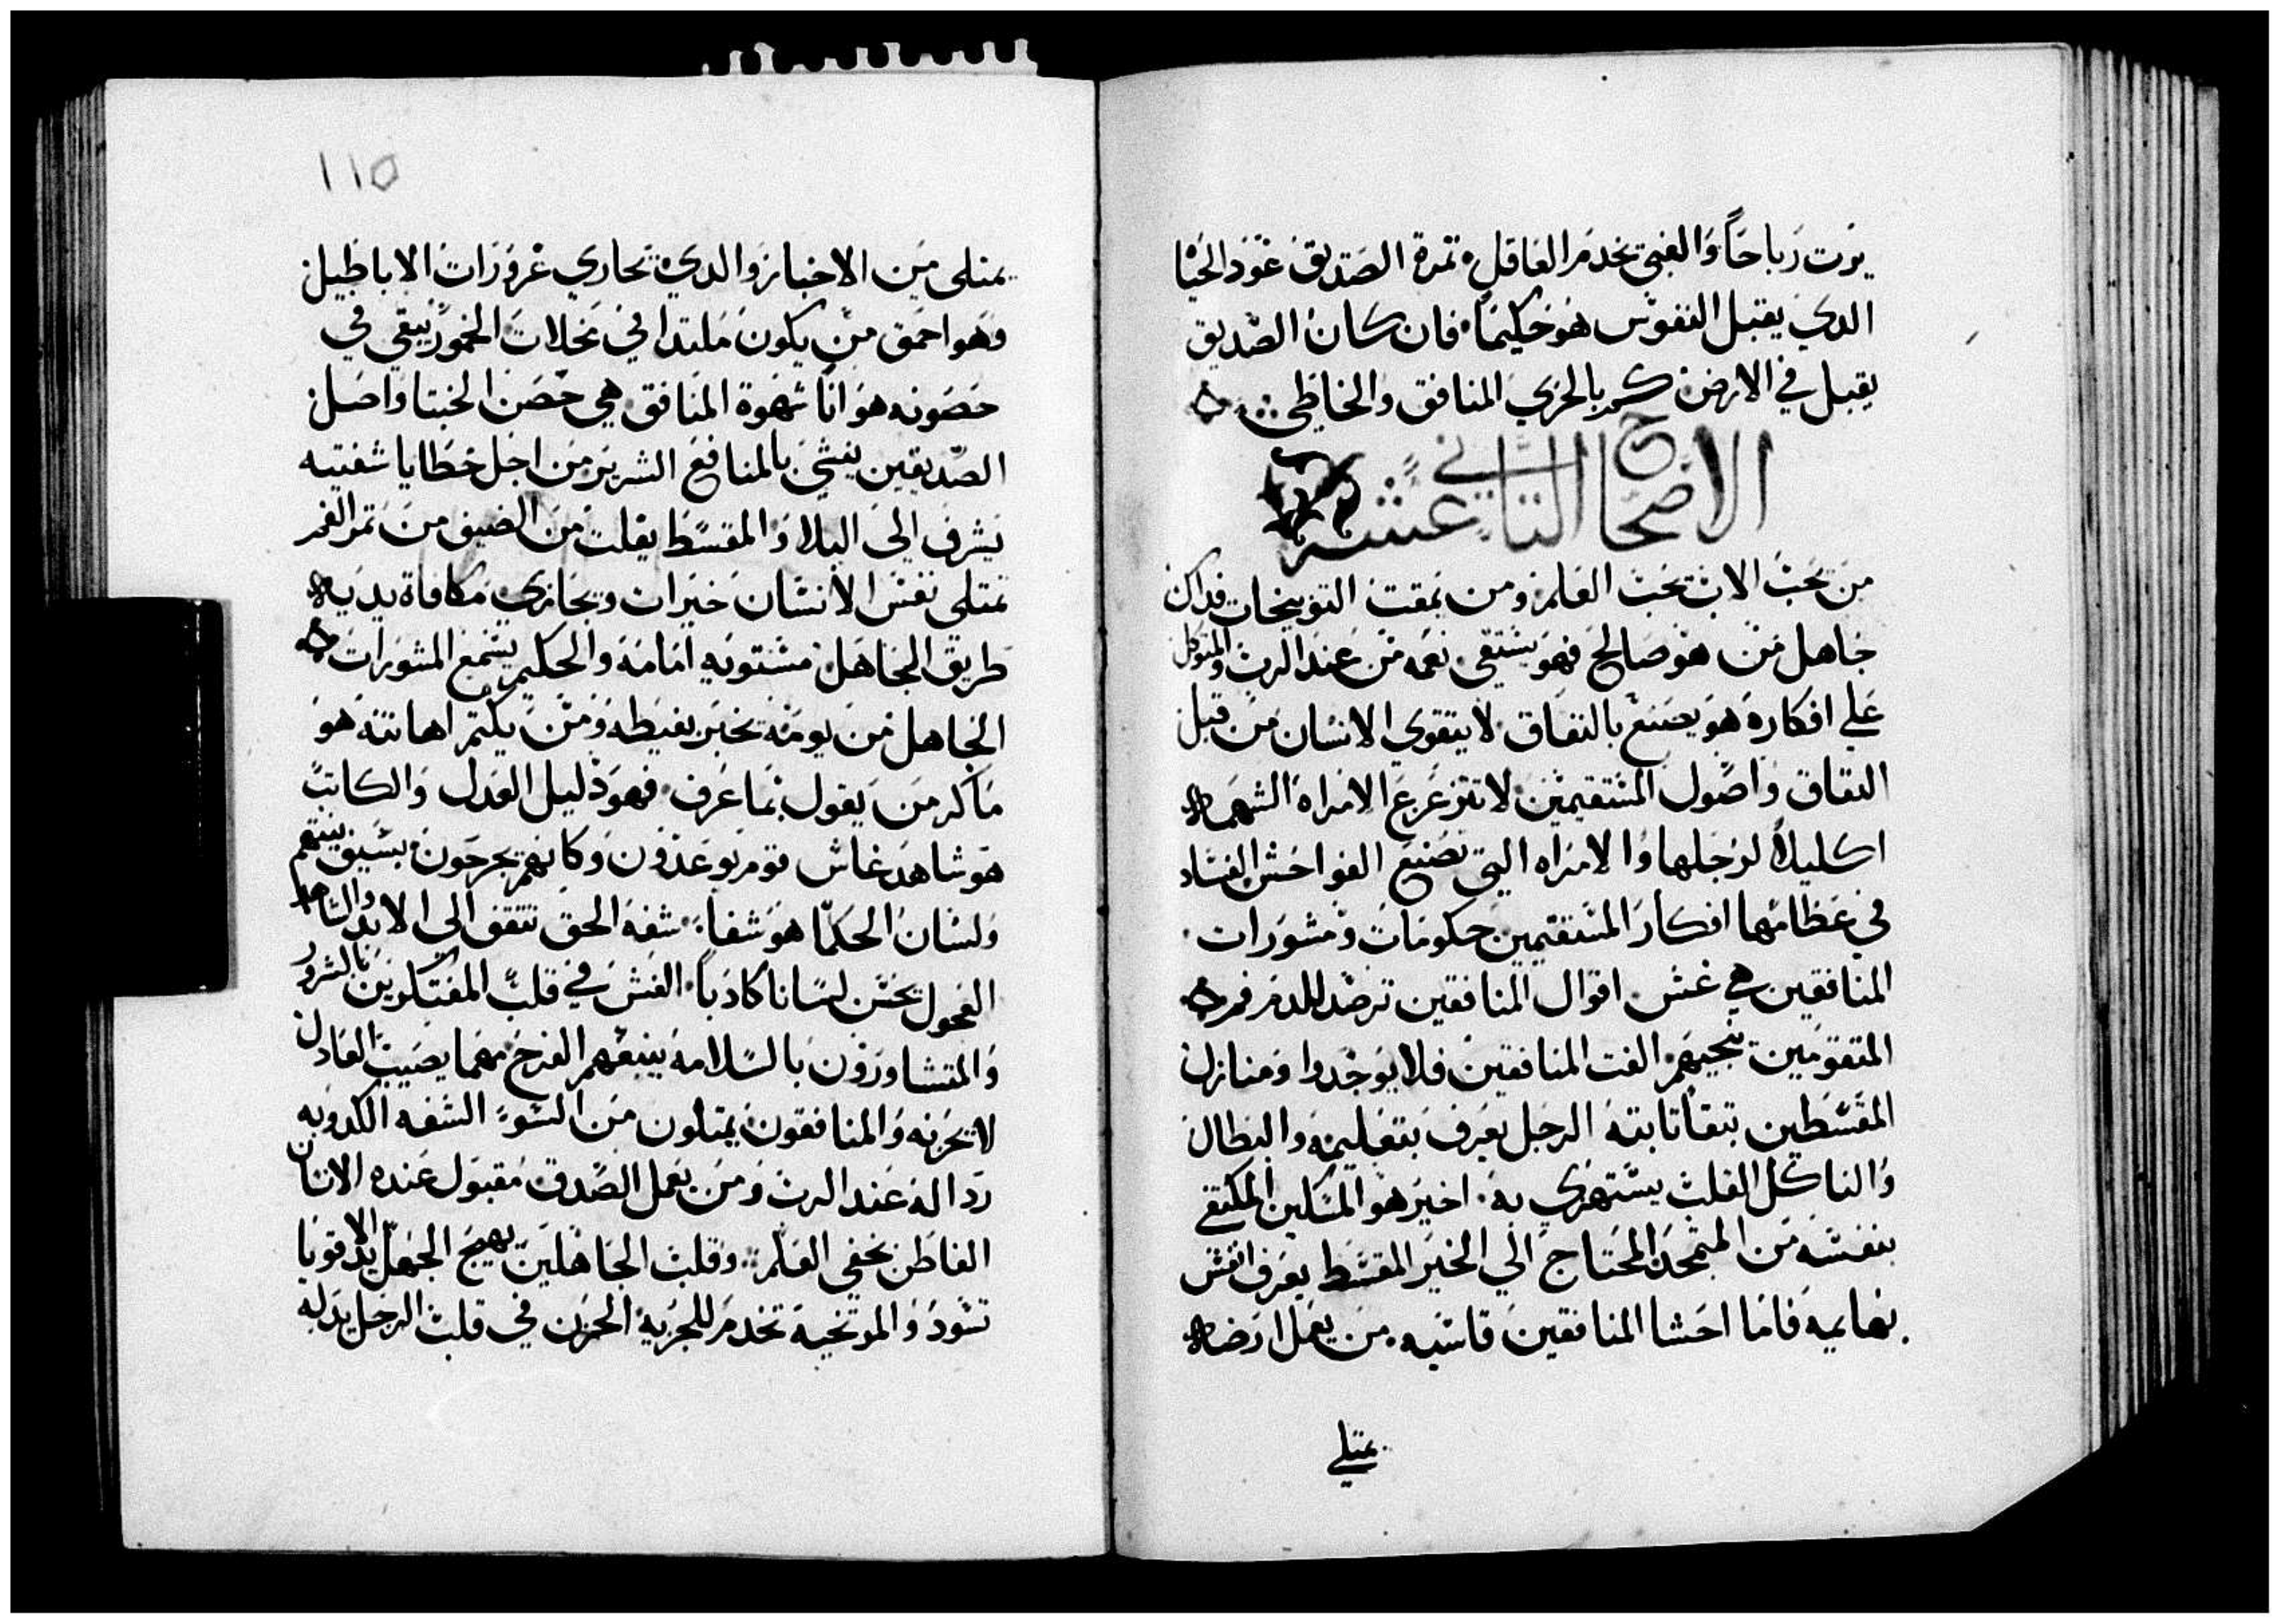 يرت رباحاً والغبي يخدم العاقل ثمرة الصديق عود الحياة
الدي يقتبل النفوس هو حكيماً فان كان الصديق
يقبل في الارض كم بالحري المنافق والخاطي
الاصحاح الثاني عشر
من يحب الادب يحب العلم ومن يمقت التوبيخات فداك
جاهل من هو صالح فهو يستقي نعمه من عند الرب والمتوكل
علي افكاره هو يصنع بالنفاق لا يتقوي الانسان من قبل
النفاق واصول المستقيمين لا تتزعزع الامراه الشهمه
اكليلاً لرجلها والامراه التي تصنع الفواحش الفساد
في عظامها افكار المستقيمين حكومات ومشورات
المنافقين هي غش اقوال المنافقين ترصد للدم فم
المتقومين ينجيهم الفت المنافقين فلا يوجدوا ومنازل
المقسطين تبقا تابته الرجل يعرف بتعليمه والبطال
والناكل القلب يستهزي به اخير هو المسكين المكتفي
بنفسه من المتمجد المحتاج الي الخبز المقسط يعرف انفس
بهايمه فاما احشا المنافقين قاسيه من يعمل ارضه
يمتلي
١١٥
يمتلي من الاخباز والدي يحاري غرورات الاباطيل
وهو احمق من يكون ملتدا في محلات الخمور يبقي في
حصونه هوانا شهوة المنافق هي حصن الخبتا واصل
الصديقين ينشي بالمنافع الشرير من اجل خطايا شفتيه
يشرف الي البلا والمقسط يفلت من الضيق من تمر الفم
تمتلي نفس الانسان خيرات ويجازي مكافاة يديه
طريق الجاهل مستويه امامه والحكيم يسمع المشورات
الجاهل من يومه يخبر بغيظه ومن يكتم اهانته هو
ماكر من يقول بما عرف فهو دليل العدل والكاتب
هو شاهد غاش قوم يوعدون وكانهم يجرحون بسيف ينبتهم
ولسان الحكما هو شفا شفة الحق تتقف الي الابد والشاهد
العجول يحسن لسانا كادبا الغش في قلب المفتكرين بالشرور
والمتشاورون بالسلامه يتبعهم الفرح مهما يصيب العادل
لا يحزنه والمنافقون يمتلون من السو الشفه الكدوبه
ردالة عند الرب ومن يعمل الصدق مقبول عنده الانسان
الفاطن يخفي العلم وقلب الجاهلين يهيج الجهل يد الاقويا
تسود والمرتخيه تخدم للجزيه الحزن في قلب الرجل يدله